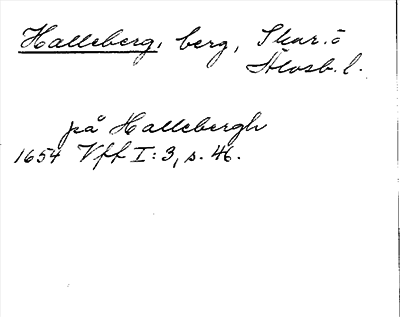 Halleberg, berg, Skar. o
Älvsb. l.
på Hallebergh
1654 Vff I:3, s. 46.